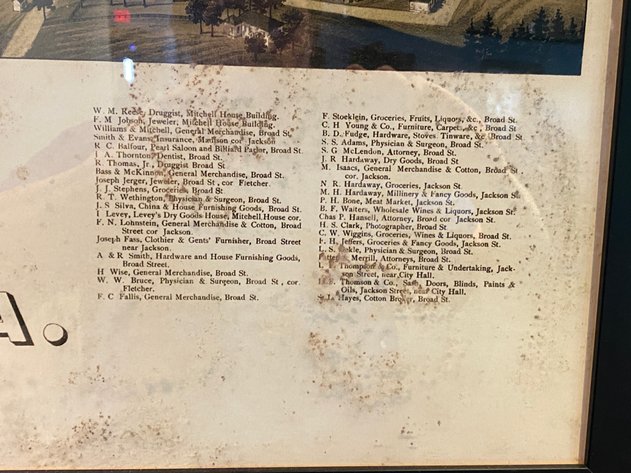 W. M. Reese, Druggist, Mitchell House Building.
F. M Jobson, Jeweler, Mitchell House Building.
Williams & Mitchell, General Merchandise, Broad St.
Smith & Evans, Insurance, Madison cor Jackson
R. C. Balfour, Pearl Saloon and Billiard Parlor, Broad St.
I A. Thornton, Dentist, Broad St.
R. Thomas, Jr, Druggist Broad St.
Bass & McKinnon, General Merchandise, Broad St.
Joseph Jerger, Jeweler, Broad St, cor Fletcher.
J. J. Stephens, Groceries, Broad St
R. T. Wethington, Physician & Surgeon, Broad St.
J. S Silva, China & House Furnishing Goods, Broad St.
I Levey, Levey's Dry Goods House, Mitchell House cor.
F. N. Lohnstein, General Merchandise & Cotton, Broad
Street cor Jackson.
Joseph Fass, Clothier & Gents' Furnisher, Broad Street
near Jackson.
A & R Smith, Hardware and House Furnishing Goods,
Broad Street.
H Wise, General Merchandise, Broad St.
W. W. Bruce, Physician & Surgeon, Broad St, cor
Fletcher.
F. C Fallis, General Merchandise, Broad St.
F. Stoeklein, Groceries, Fruits, Liquors, &c., Broad St.
C. H Young & Co., Furniture, Carpet, &c, Broad St
B. D. Fudge, Hardware, Stoves, Tinware, &c Broad St
S. S. Adams, Physician & Surgeon, Broad St.
S. G McLendon, Attorney, Broad St.
J. R Hardaway, Dry Goods, Broad St
M. Isaacs, General Merchandise & Cotton, Broad St
cor. Jackson.
N R. Hardaway, Groceries, Jackson St.
M. H. Hardaway, Millinery & Fancy Goods, Jackson St.
P. H. Bone, Meat Market, Jackson St.
B. F. Waiters, Wholesale Wines & Liquors, Jackson St.
Chas P. Hansell, Attorney, Broad cor Jackson St.
H. S. Clark, Photographer, Broad St
C. W. Wiggins, Groceries, Wines & Liquors, Broad St.
P. H. Jeffers, Groceries & Fancy Goods, Jackson St.
L. S. Physician & Surgeon, Broad St.
Merrill, Attorneys, Broad St.
Thompson & Co., Furniture & Undertaking, Jack-
son Street, near City Hall.
Thomson & Co., Sash, Doors, Blinds, Paints &
Oils, Jackson Street, near City Hall.
Hayes, Cotton Broker, Broad St.
A.